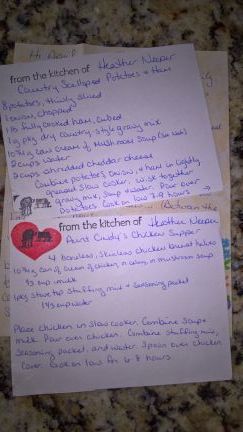 from the kitchen of Heather Neeper
Country Scalloped Potatoes & Ham
8 potatoes, thinly sliced
1 onion, chopped
1 lb fully cooked ham, cubed
1 pkg dry country style gravy mix
10 3/4 oz can cream of mushroom soup
2 cups water
2 cups shredded cheddar cheese
Combine potatoes, onion, & ham in lightly
greased slow cooker. Whisk together
gravy mix, soup & water. Pour over
potatoes. Cook on low 7-9 hours →
from the kitchen of Heather Neeper
Aunt Cindy's Chicken Supper
4 boneless, skinless chicken breast halves
10 3/4 oz can of cream of chicken, celery, or mushroom soup
1/3 cup milk
1 pkg stove top stuffing mix + seasoning packet
1 2/3 cup water
Place chicken in slow cooker. Combine soup &
milk. Pour over chicken. Combine stuffing mix,
seasoning packet, and water. Spoon over chicken.
Cover. Cook on low for 6-8 hours.